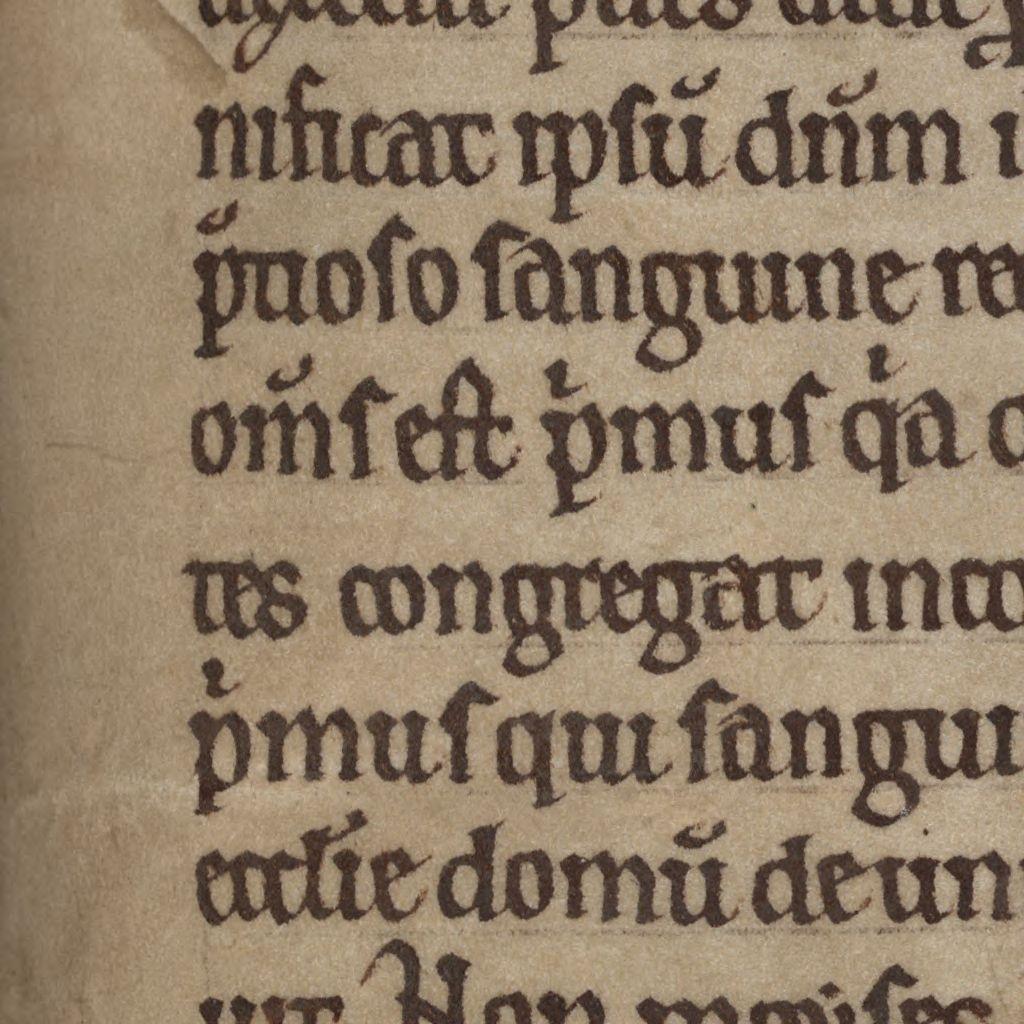 nificat ipsū dn̄m
p̄tioso sanguine re
om̄s est pͥmus qͥa
tes congregat in co
pͥmus qui sangui
eccl̄ie domū de un
uit Non moyses